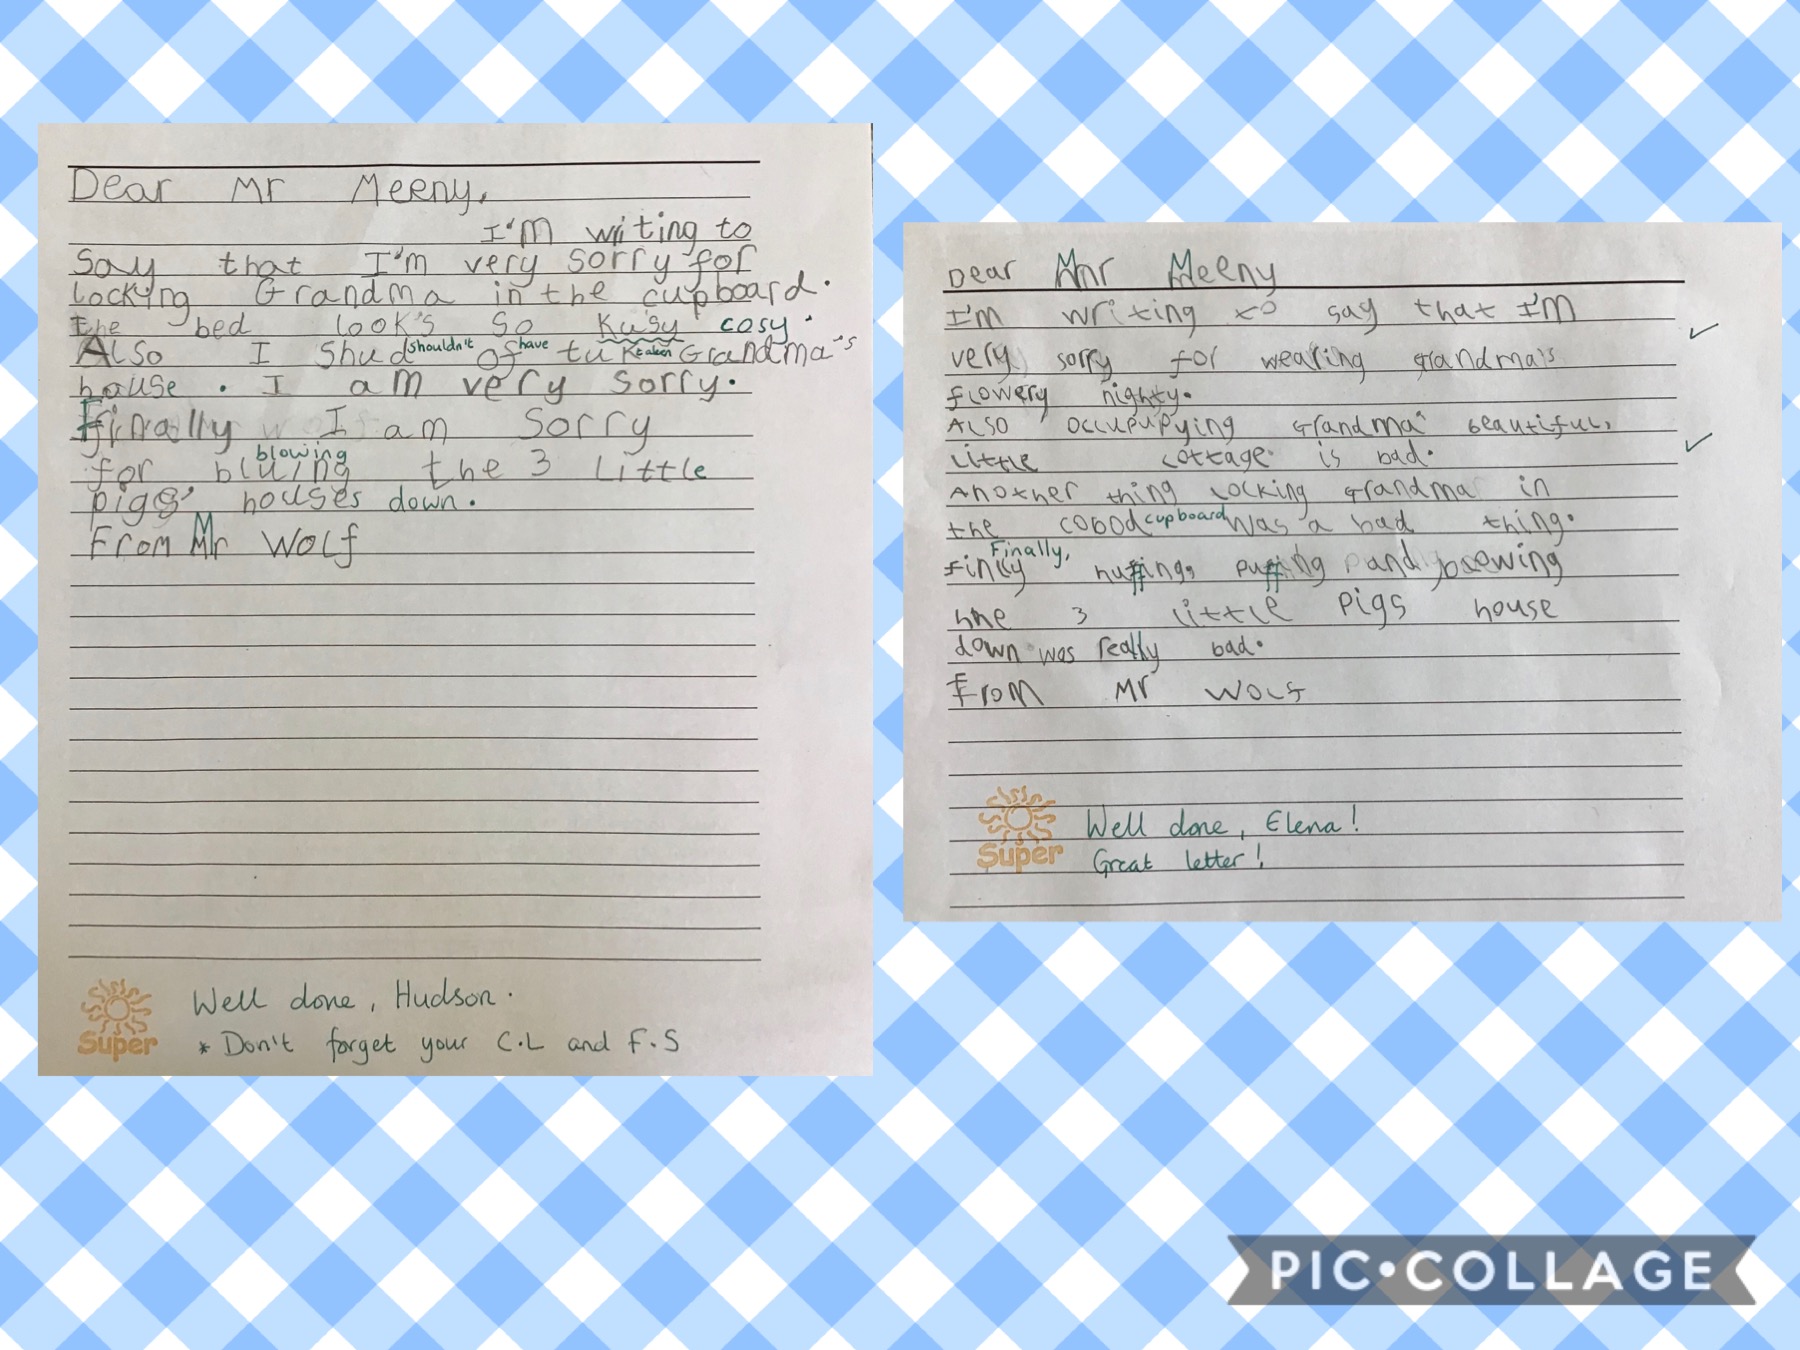 Dear Mr Meeny,
I'm writing to
Say that I'm very sorry for
locking Grandma in the cupboard.
the bed look's so Kusy cosy.
Also I Shud shouldn't of have tuk taken Grandma's
house. I am very sorry.
Finally I am Sorry
for bluing blowing the 3 Little
pigs' houses down.
From Mr Wolf
Super
Well done, Hudson.
* Don't forget your C.L and F.S
Dear Mr Meeny
I'm writing to say that I'm
very sorry for wearing grandma's
flowery nighty.
Also occupupying Grandma beautiful,
little cottage is bad.
Another thing locking grandma in
the cobod cupboard was a bad thing.
finlly Finally, huffing, puffing and
3 little pigs house
down was really bad.
From Mr Wolf
Super
Well done, Elena!
Great letter!
PIC•COLLAGE